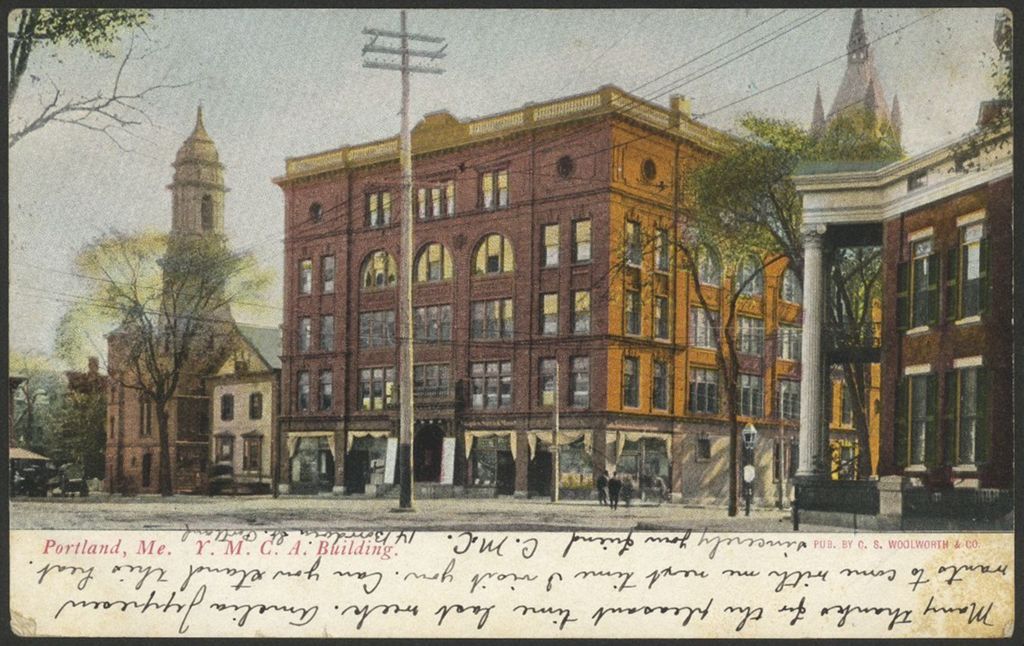 Portland, Me. Y. M. C. A. Building.
PUB. BY C. S. WOOLWORTH & CO.
Many thanks for the pleasant time last week. Amelia Jeppesen
wants to come with me next time I visit you. Can you stand this heat.
Sincerely your friend C. M. C.
14 Boardman St. Portland